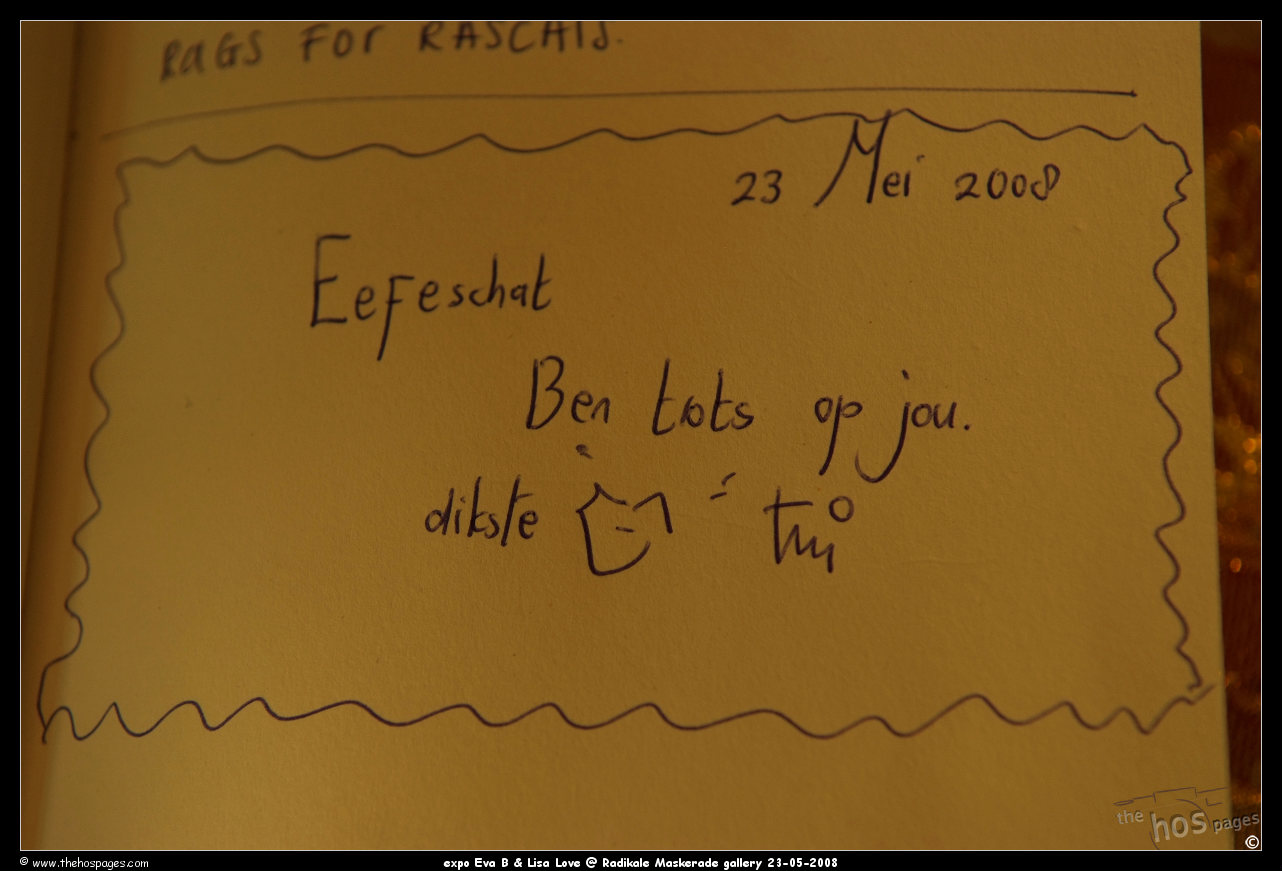 RAGS FOR RASCALS.
23 Mei 2008
Eefeschat
Ben trots op jou.
dikste
the hos pages
©
© www.thehospages.com
expo Eva B & Lisa Love @ Radikale Maskerade gallery 23-05-2008